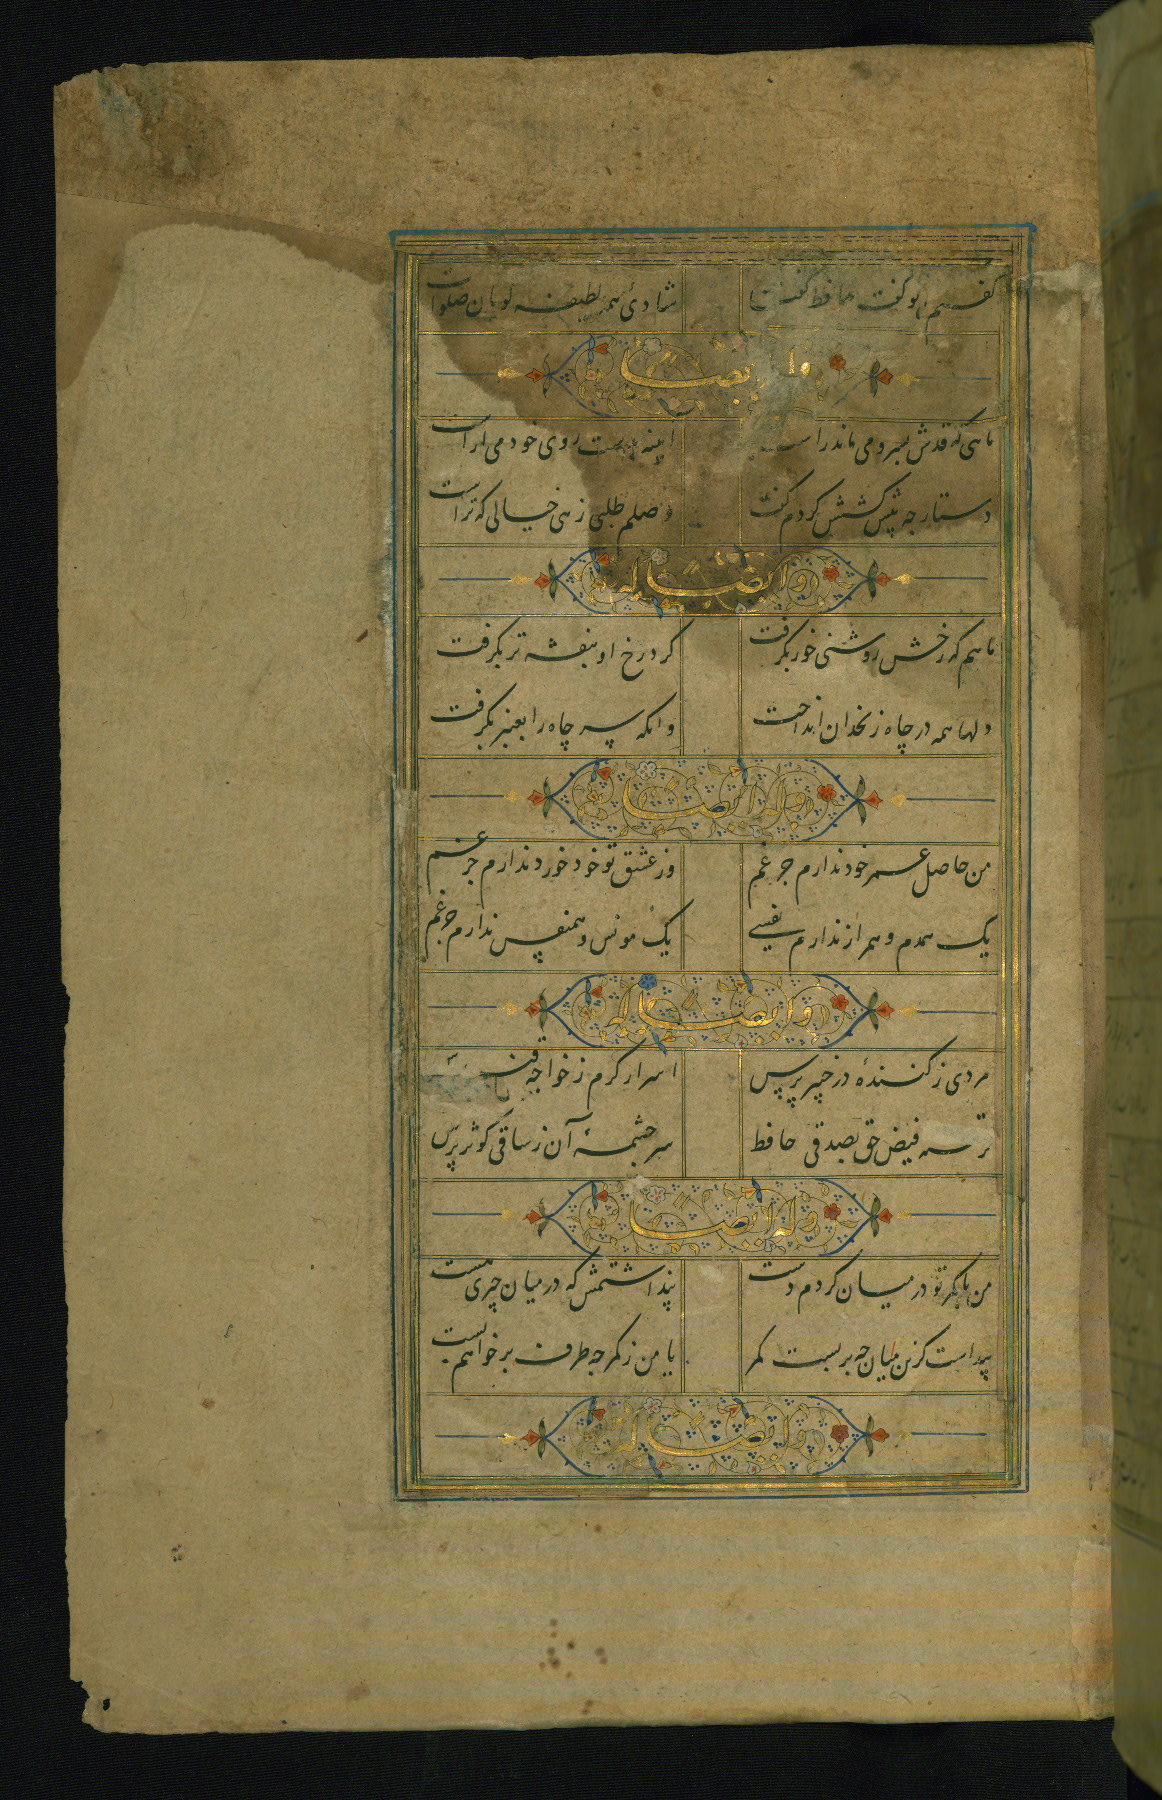 گفتم بوگفت حافظ گفتا
شادی همه لطیفه گویان صلوات
وله ایضا
ماهی که قدش بسرو می ماند راست
آینه بدست روی خود می آراست
دستارچه پیشکشش کردم گفت
وصلم طلبی زهی خیالی که تراست
وله ایضا
ماهم که رخش روشنی خور بگرفت
گرد رخ او بنفشه تر بگرفت
دلها همه در چاه زنخدان انداخت
وانگه سر چاه را بعنبر بگرفت
وله ایضا
من حاصل عمر خود ندارم جز غم
وز عشق تو خود خورد ندارم جز غم
یک همدم و همراز ندارم نفسی
یک مونس و همنفس ندارم جز غم
وله ایضا
مردی ز کننده در خیبر پرس
اسرار کرم ز خواجه
تشنه فیض حق بصدقی حافظ
سرچشمه آن ز ساقی کوثر پرس
وله ایضا
من با کمر تو در میان کردم دست
پنداشتمش که در میان چیزی هست
پیداست کزین میان چه بربست کمر
یا من ز کمر چه طرف بر خواهم بست
وله ایضا